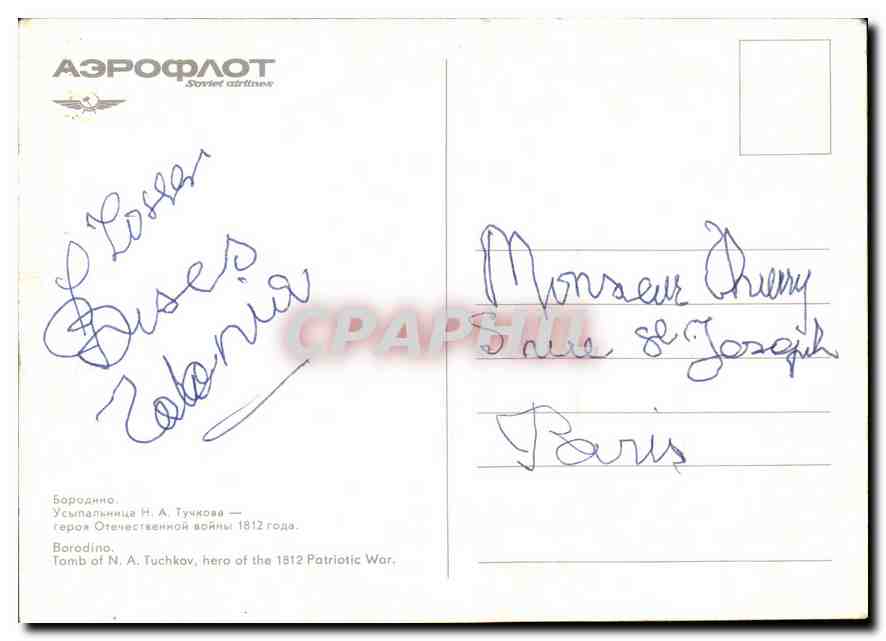 АЭРОФЛОТ
Soviet airlines
Bises
Monsieur Thierry
5 rue St Joseph
Paris
CPARAMA
Бородино.
Усыпальница Н. А. Тучкова —
героя Отечественной войны 1812 года.
Borodino.
Tomb of N. A. Tuchkov, hero of the 1812 Patriotic War.